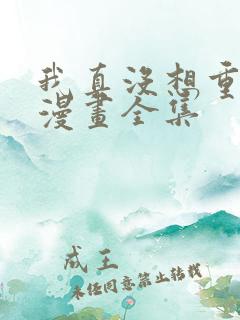 我真没想重
漫畫全集
成王
未经同意禁止转载